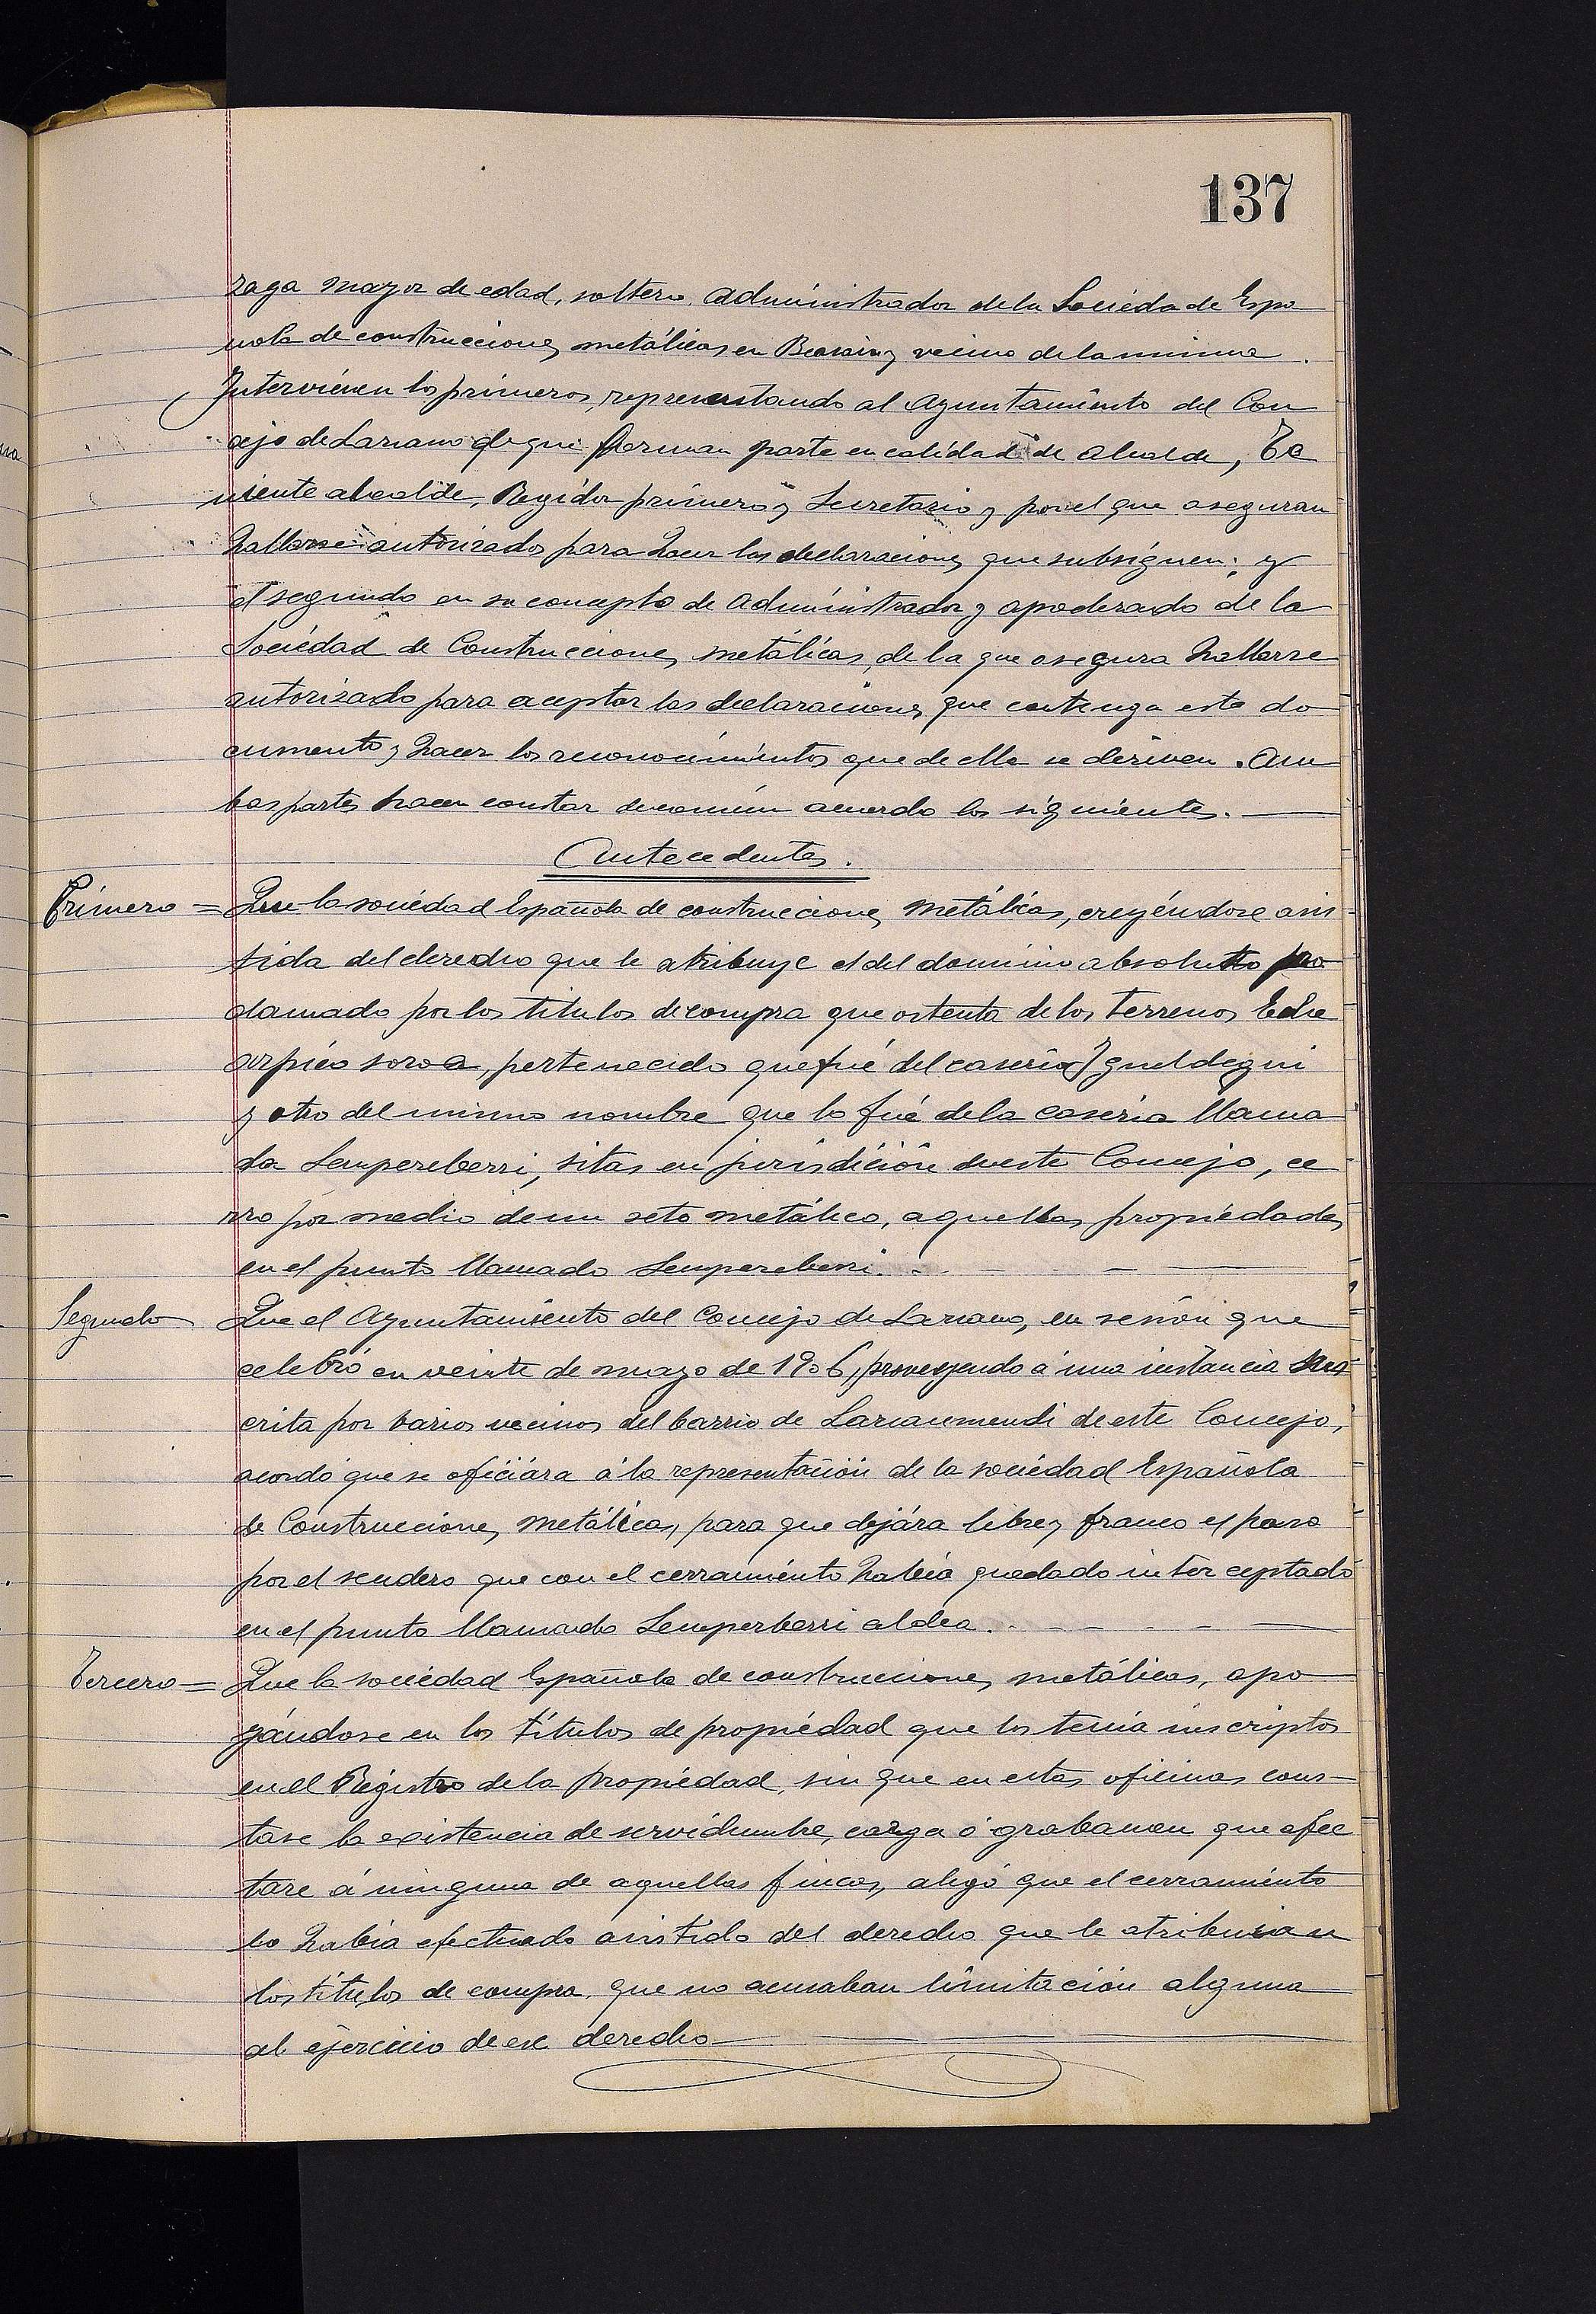 137
zaga mayor de edad, soltero, administrador de la Socieda de Espa
nola de construcciones metálicas en Beasain y vecino de la misma.
Intervienen los primeros, representando al Ayuntamiento del Con
cejo de Lazcano de que forman parte en calidad de alcalde, Te
niente alcalde, Regidor primero y Secretario y por el que aseguran
hallarse autorizados para hacer las declaraciones que subsiguen; y
el segundo en su concepto de Administrador y apoderado de la
Sociedad de Construcciones metálicas, de la que asegura hallarse
autorizado para aceptar las declaraciones que contenga este do
cumento y hacer los reconocimientos que de ella se deriven. Am
bas partes hacen constar de comun acuerdo los siguientes.
Antecedentes.
Primero = Que la sociedad Española de construcciones metálicas, creyéndose asis
tida del derecho que le atribuye el del dominio absoluto pro
clamado por los titulos de compra que ostenta de los terrenos Eche
azpico soroa, pertenecido que fué del caserio Igueldegui
y otro del mismo nombre que lo fué de la caseria llama
da Sempereberri, sitas en jurisdición de este Concejo, ce
rro por medio de un seto metálico, aquellas propiedades
en el punto llamado Sempereberri.
Segundo Que el Ayuntamiento del Concejo de Lazcano, en sesión que
celebró en veinte de mayo de 1906, proveyendo á una instancia sus
crita por varios vecinos del barrio de Lazcaumendi de este Concejo,
acordó que se oficiára á la representación de la sociedad Española
de Construcciones metálicas, para que dejára libre y franco el paso
por el sendero que con el cerramiento había quedado interceptado
en el punto llamado Semperberri aldea.
Tercero = Que la sociedad Española de construcciones metálicas, apo
yándose en los títulos de propiedad que los tenía inscriptos
en el Registro de la propiedad, sin que en estas oficinas cons-
tase la existencia de servidumbre, carga ó grabamen que afec
tare á ninguna de aquellas fincas, alegó que el cerramiento
lo había efectuado asistido del derecho que le atribuian
los títulos de compra, que no acusaban limitación alguna
al ejercicio de ese derecho